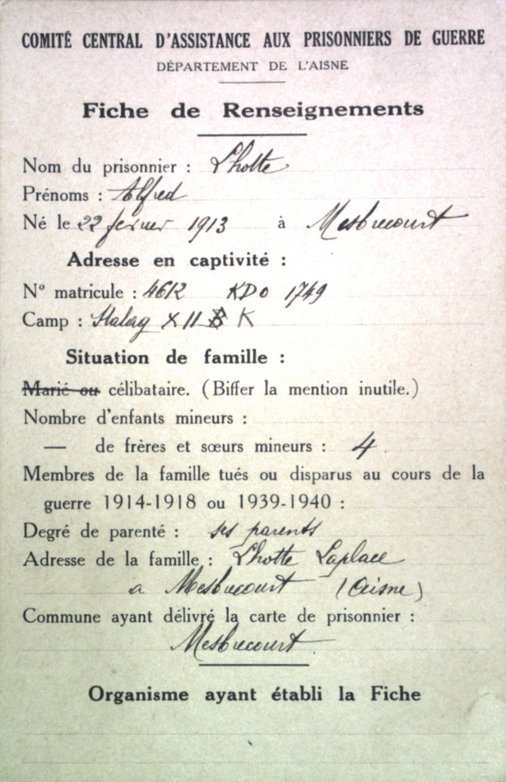 COMITÉ CENTRAL D'ASSISTANCE AUX PRISONNIERS DE GUERRE
DÉPARTEMENT DE L'AISNE
Fiche de Renseignements
Nom du prisonnier : Lhotte
Prénoms : Alfred
Né le 22 fevrier 1913 à Mesbrecourt
Adresse en captivité :
N° matricule : 4612 KDO 1749
Camp : Stalag X II B K
Situation de famille :
Marié ou célibataire. (Biffer la mention inutile.)
Nombre d'enfants mineurs :
— de frères et sœurs mineurs : 4
Membres de la famille tués ou disparus au cours de la
guerre 1914-1918 ou 1939-1940 :
Degré de parenté : ses parents
Adresse de la famille : Lhotte Laplace
a Mesbrecourt (Aisne)
Commune ayant délivré la carte de prisonnier :
Mesbrecourt
Organisme ayant établi la Fiche